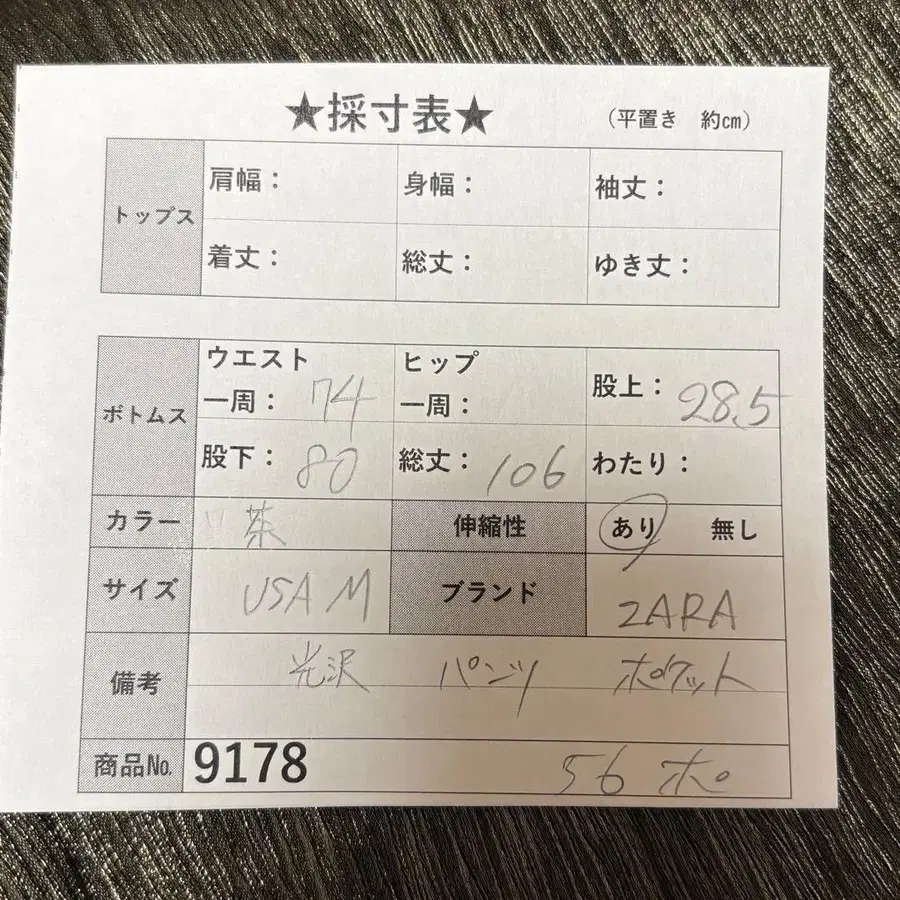 ★採寸表★ (平置き 約cm)
トップス
肩幅： 身幅： 袖丈：
着丈： 総丈： ゆき丈：
ボトムス
ウエスト ヒップ
一周： 74 一周： 股上： 28.5
股下： 80 総丈： 106 わたり：
カラー 茶 伸縮性 あり 無し
サイズ USA M ブランド ZARA
備考 光沢 パンツ ポケット
商品No. 9178 56 ポ